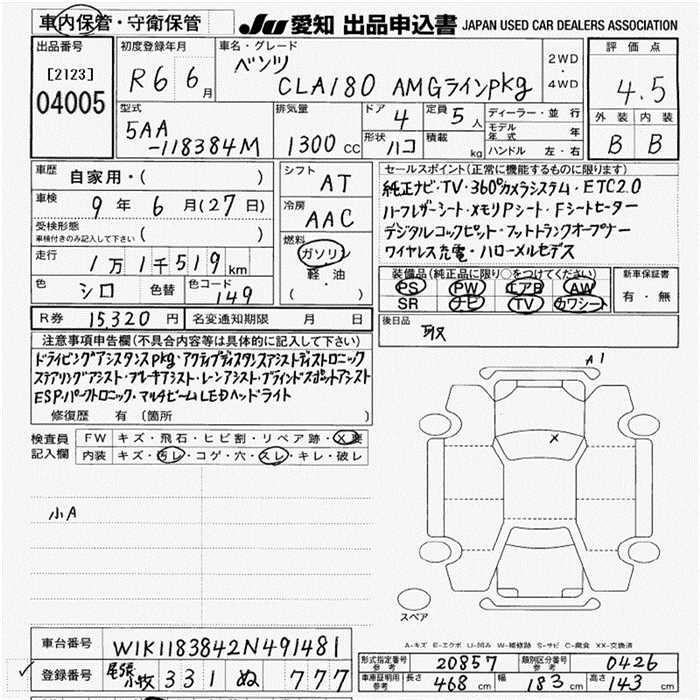 車内保管・守衛保管
JU 愛知 出品申込書 JAPAN USED CAR DEALERS ASSOCIATION
出品番号
[2123]
04005
初度登録年月
R6 6月
車名・グレード
ベンツ
CLA180 AMGラインPkg
2WD
・
4WD
評価点
4.5
外装 内装
B B
型式
5AA
-118384M
排気量
1300 cc
ドア 4
定員 5人
形状 ハコ
積載 kg
ディーラー・並行
モデル年式 年
ハンドル 左・右
車歴 自家用・( )
車検 9年6月(27日)
受検形態
車検付きのみ記入して下さい ( )
走行 1万1千519km
色 シロ 色替 色コード 149
シフト
AT
冷房
AAC
燃料
ガソリン
軽油
( )
セールスポイント(正常に機能するものに限ります)
純正ナビ・TV・360°カメラシステム・ETC2.0
ハーフレザーシート・メモリPシート・Fシートヒーター
デジタルコックピット・フットトランクオープナー
ワイヤレス充電・ハローメルセデス
装備品(純正品に限り○をつけてください)
PS PW エアB AW
SR ナビ TV カワシート
新車保証書
有・無
R券 15,320円 名変通知期限 月 日
後日品
取
注意事項申告欄(不具合内容等は具体的に記入して下さい)
ドライビングアシスタンスPkg・アクティブディスタンスアシストディストロニック
ステアリングアシスト・ブレーキアシスト・レーンアシスト・ブラインドスポットアシスト
ESP・パークトロニック・マルチビームLEDヘッドライト
修復歴 有(箇所 )
検査員記入欄
FW キズ・飛石・ヒビ割・リペア跡・X要
内装 キズ・汚レ・コゲ・穴・スレ・キレ・破レ
小A
A1
X
スペア
A-キズ E-エクボ U-凹み W-補修跡 S-サビ C-腐食 XX-交換済
車台番号 W1K1183842N491481
登録番号 尾張小牧 331 ぬ 777
形式指定番号 参考 20857 類別区分番号 参考 0426
車庫証明用 参考 長さ 468cm 幅 183cm 高さ 143cm